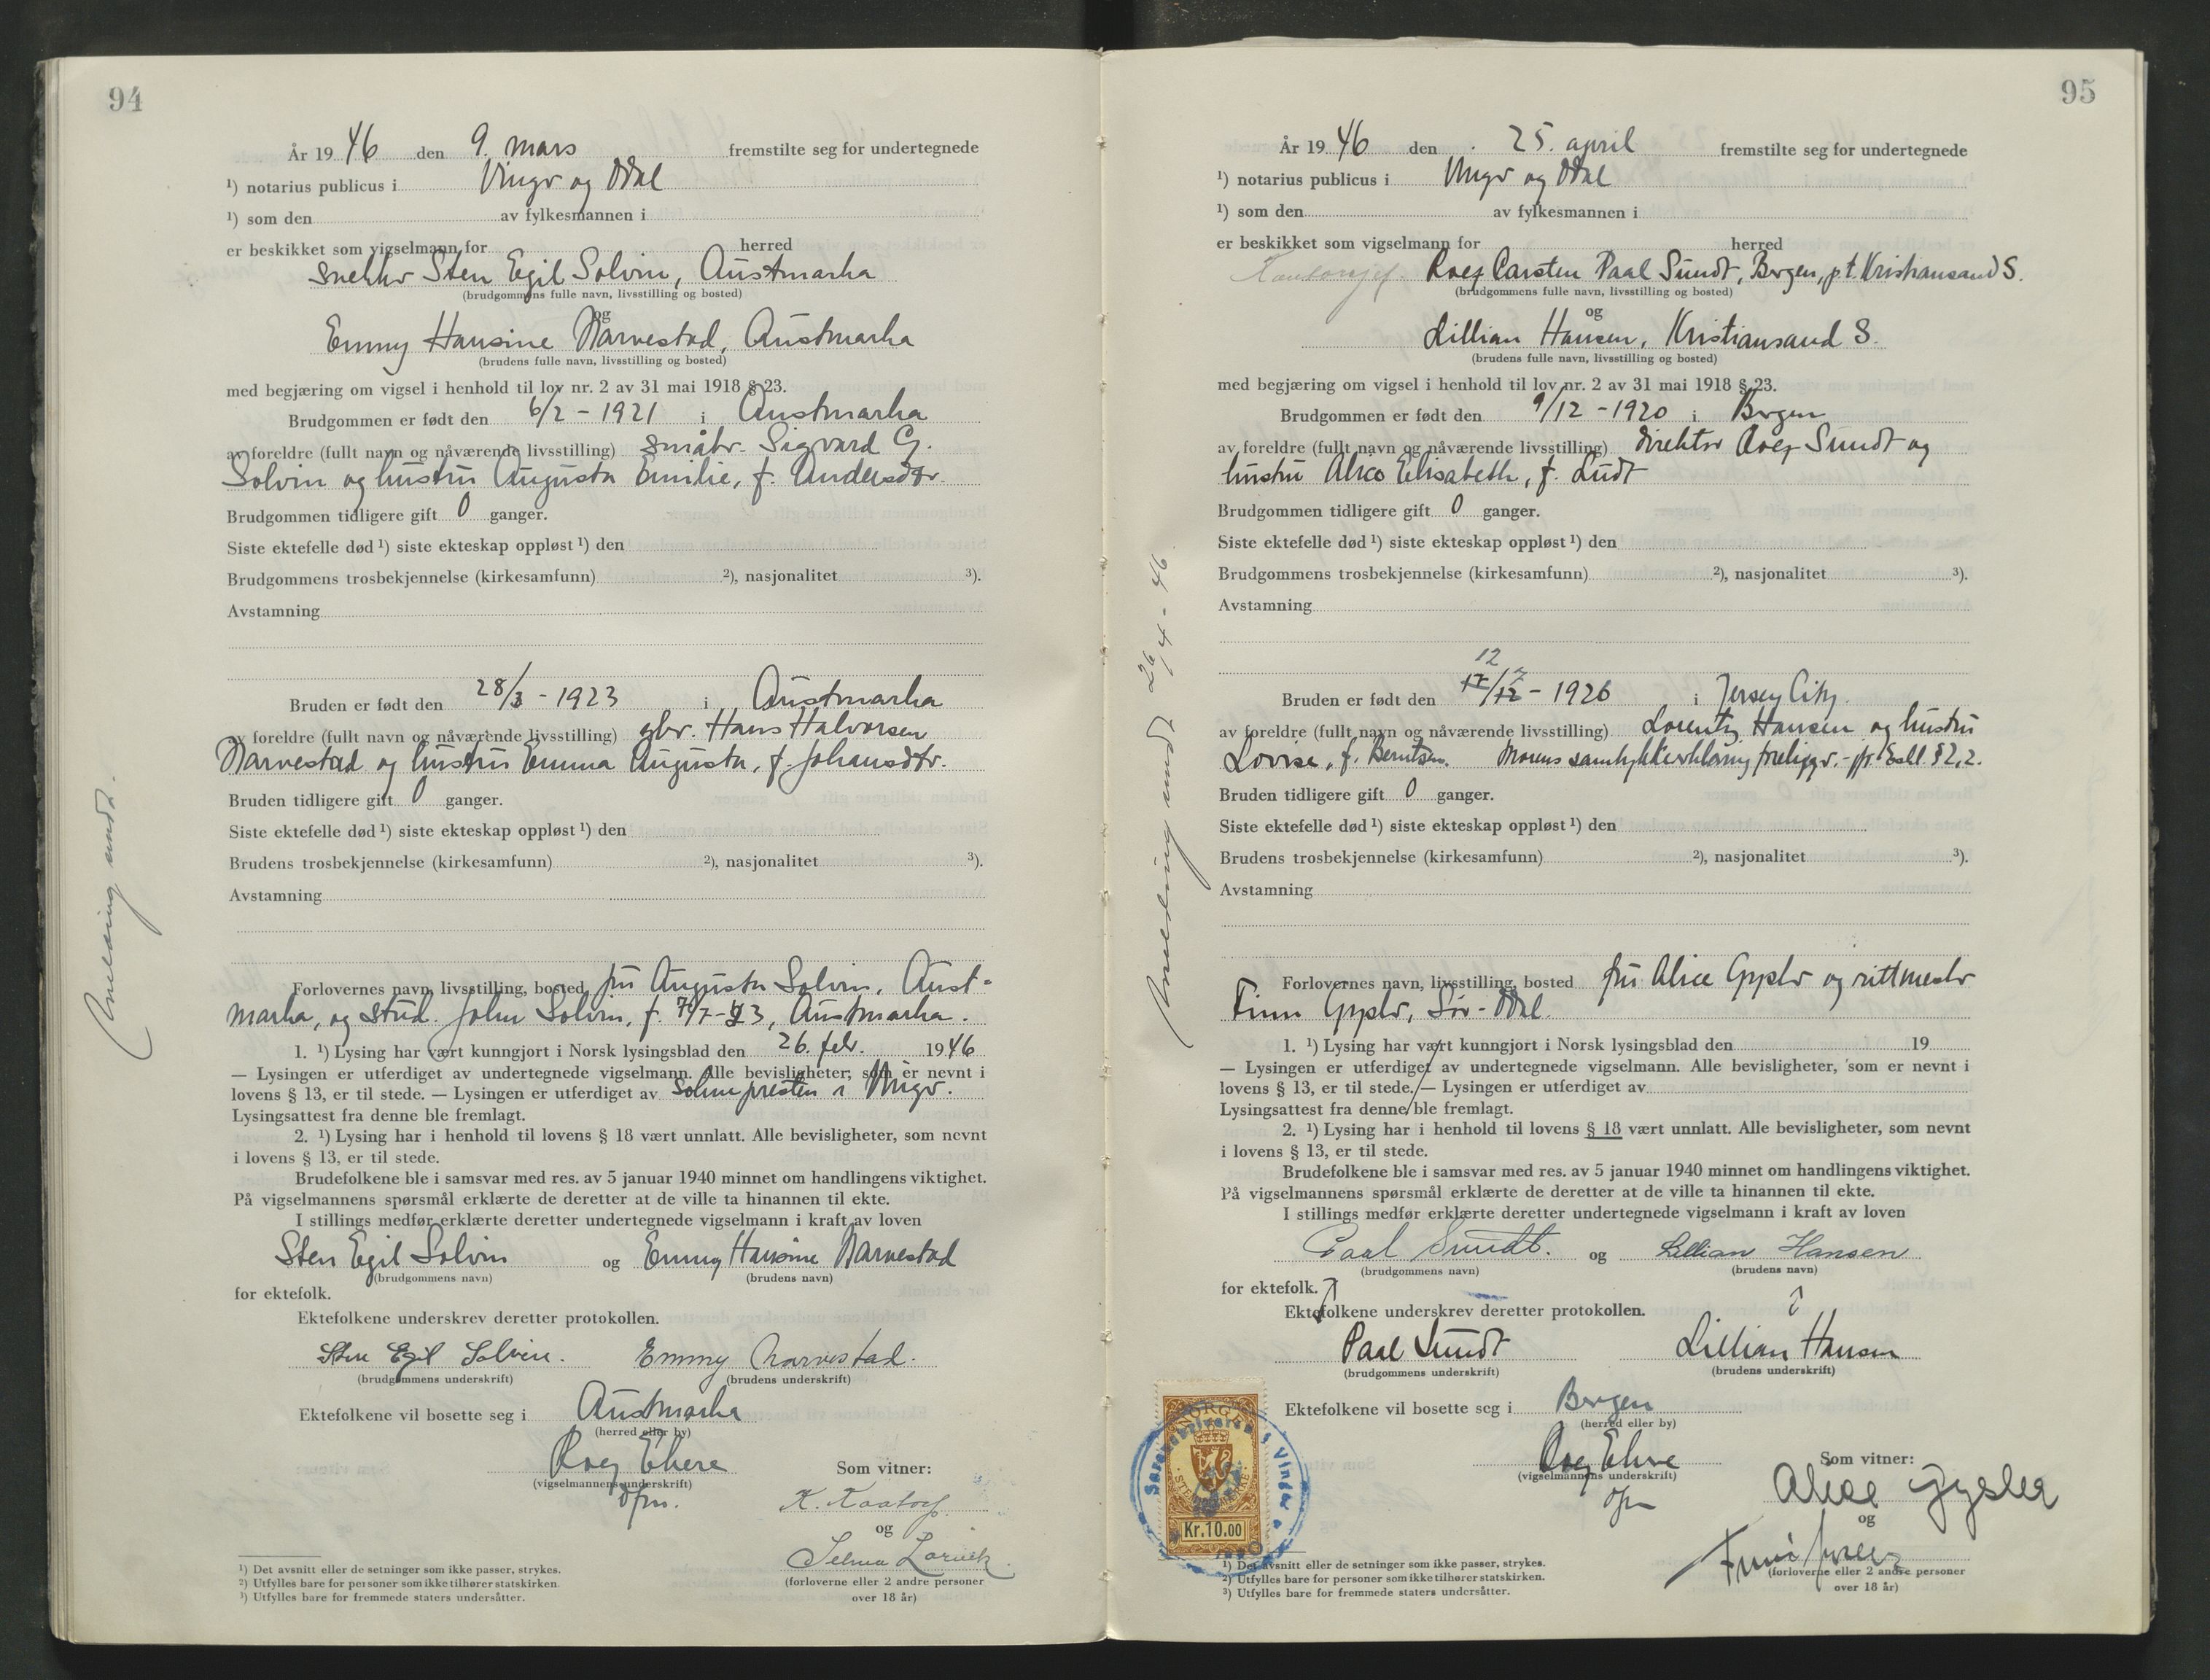 94
År 19 46 den 9. mars fremstilte seg for undertegnede
¹) notarius publicus i Vinger og Odal
¹) som den av fylkesmannen i
er beskikket som vigselmann for herred
snekker Sten Egil Solvin, Austmarka
(brudgommens fulle navn, livsstilling og bosted)
og
Emmy Hansine Narvestad, Austmarka
(brudens fulle navn, livsstilling og bosted)
med begjæring om vigsel i henhold til lov nr. 2 av 31 mai 1918 § 23.
Brudgommen er født den 6/2 - 1921 i Austmarka
av foreldre (fullt navn og nåværende livsstilling) småbr. Sigvard G.
Solvin og hustru Augusta Emilie, f. Andersdtr.
Brudgommen tidligere gift 0 ganger.
Siste ektefelle død ¹) siste ekteskap oppløst ¹) den
Brudgommens trosbekjennelse (kirkesamfunn) ²), nasjonalitet ³).
Avstamning
Bruden er født den 28/3 - 1923 i Austmarka
av foreldre (fullt navn og nåværende livsstilling) gbr. Hans Halvorsen
Narvestad og hustru Emma Augusta, f. Johansdtr.
Bruden tidligere gift 0 ganger.
Siste ektefelle død ¹) siste ekteskap oppløst ¹) den
Brudens trosbekjennelse (kirkesamfunn) ²), nasjonalitet ³).
Avstamning
Forlovernes navn, livsstilling, bosted fru Augusta Solvin, Aust-
marka, og stud. John Solvin, f. Austmarka.
1. ¹) Lysing har vært kunngjort i Norsk lysingsblad den 26. febr. 1946
— Lysingen er utferdiget av undertegnede vigselmann. Alle bevisligheter, som er nevnt i
lovens § 13, er til stede. — Lysingen er utferdiget av soknepresten i Vinger.
Lysingsattest fra denne ble fremlagt.
2. ¹) Lysing har i henhold til lovens § 18 vært unnlatt. Alle bevisligheter, som nevnt
i lovens § 13, er til stede.
Brudefolkene ble i samsvar med res. av 5 januar 1940 minnet om handlingens viktighet.
På vigselmannens spørsmål erklærte de deretter at de ville ta hinannen til ekte.
I stillings medfør erklærte deretter undertegnede vigselmann i kraft av loven
Sten Egil Solvin og Emmy Hansine Narvestad
(brudgommens navn) (brudens navn)
for ektefolk.
Ektefolkene underskrev deretter protokollen.
Sten Egil Solvin. Emmy Narvestad.
(brudgommens underskrift) (brudens underskrift)
Ektefolkene vil bosette seg i Austmarka
(herred eller by)
(vigselmannens underskrift) Som vitner:
og
Selma
(forloverne eller 2 andre personer
over 18 år)
¹) Det avsnitt eller de setninger som ikke passer, strykes.
²) Utfylles bare for personer som ikke tilhører statskirken.
³) Utfylles bare for fremmede staters undersåtter.
Melding sendt.
95
År 19 46 den 25. april fremstilte seg for undertegnede
¹) notarius publicus i Vinger og Odal
¹) som den av fylkesmannen i
er beskikket som vigselmann for herred
Kontorsjef Rolf Carsten Paal Sundt, Bergen, p.t. Kristiansand S.
(brudgommens fulle navn, livsstilling og bosted)
og
Lillian Hansen, Kristiansand S.
(brudens fulle navn, livsstilling og bosted)
med begjæring om vigsel i henhold til lov nr. 2 av 31 mai 1918 § 23.
Brudgommen er født den 9/12 - 1920 i Bergen
av foreldre (fullt navn og nåværende livsstilling) direktør Rolf Sundt og
hustru Alice Elisabeth, f. Ludt
Brudgommen tidligere gift 0 ganger.
Siste ektefelle død ¹) siste ekteskap oppløst ¹) den
Brudgommens trosbekjennelse (kirkesamfunn) ²), nasjonalitet ³).
Avstamning
Bruden er født den 12/7 - 1926 i Jersey City.
av foreldre (fullt navn og nåværende livsstilling) Lorentz Hansen og hustru
Lovise, f. Berntsen. Morens samtykkeerklæring foreligger. - jfr. Eskl. § 2, 2.
Bruden tidligere gift 0 ganger.
Siste ektefelle død ¹) siste ekteskap oppløst ¹) den
Brudens trosbekjennelse (kirkesamfunn) ²), nasjonalitet ³).
Avstamning
Forlovernes navn, livsstilling, bosted fru Alice Gysler og rittmester
Finn Gysler, Sør-Odal.
1. ¹) Lysing har vært kunngjort i Norsk lysingsblad den 19
— Lysingen er utferdiget av undertegnede vigselmann. Alle bevisligheter, som er nevnt i
lovens § 13, er til stede. — Lysingen er utferdiget av
Lysingsattest fra denne ble fremlagt.
2. ¹) Lysing har i henhold til lovens § 18 vært unnlatt. Alle bevisligheter, som nevnt
i lovens § 13, er til stede.
Brudefolkene ble i samsvar med res. av 5 januar 1940 minnet om handlingens viktighet.
På vigselmannens spørsmål erklærte de deretter at de ville ta hinannen til ekte.
I stillings medfør erklærte deretter undertegnede vigselmann i kraft av loven
Paal Sundt. og Lillian Hansen
(brudgommens navn) (brudens navn)
for ektefolk.
Ektefolkene underskrev deretter protokollen.
Paal Sundt Lillian Hansen
(brudgommens underskrift) (brudens underskrift)
Ektefolkene vil bosette seg i Bergen
(herred eller by)
(vigselmannens underskrift) Som vitner:
Alice Gysler
og
(forloverne eller 2 andre personer
over 18 år)
NORGE
Kr.10.00
¹) Det avsnitt eller de setninger som ikke passer, strykes.
²) Utfylles bare for personer som ikke tilhører statskirken.
³) Utfylles bare for fremmede staters undersåtter.
Melding sendt 26/4 - 46.